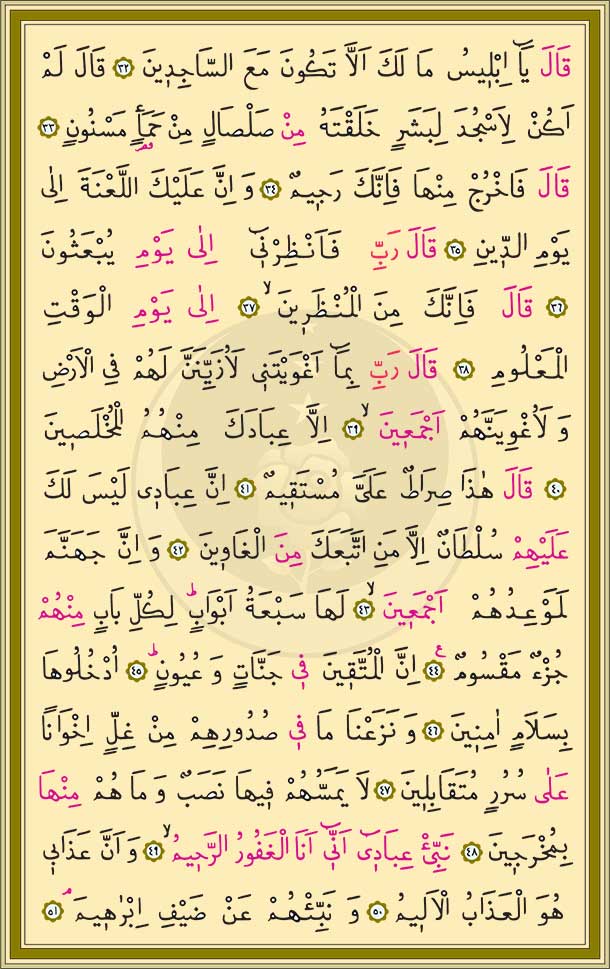 قَالَ يَٓا اِبْلٖيسُ مَا لَكَ اَلَّا تَكُونَ مَعَ السَّاجِدٖينَ ﴿٣٢﴾ قَالَ لَمْ
اَكُنْ لِاَسْجُدَ لِبَشَرٍ خَلَقْتَهُ مِنْ صَلْصَالٍ مِنْ حَمَأٍ مَسْنُونٍ ﴿٣٣﴾
قَالَ فَاخْرُجْ مِنْهَا فَاِنَّكَ رَجٖيمٌ ﴿٣٤﴾ وَ اِنَّ عَلَيْكَ اللَّعْنَةَ اِلٰى
يَوْمِ الدّٖينِ ﴿٣٥﴾ قَالَ رَبِّ فَاَنْظِرْنٖٓى اِلٰى يَوْمِ يُبْعَثُونَ
﴿٣٦﴾ قَالَ فَاِنَّكَ مِنَ الْمُنْظَرٖينَۙ ﴿٣٧﴾ اِلٰى يَوْمِ الْوَقْتِ
الْمَعْلُومِ ﴿٣٨﴾ قَالَ رَبِّ بِمَٓا اَغْوَيْتَنٖى لَاُزَيِّنَنَّ لَهُمْ فِى الْاَرْضِ
وَ لَاُغْوِيَنَّهُمْ اَجْمَعٖينَۙ ﴿٣٩﴾ اِلَّا عِبَادَكَ مِنْهُمُ الْمُخْلَصٖينَ
﴿٤٠﴾ قَالَ هٰذَا صِرَاطٌ عَلَىَّ مُسْتَقٖيمٌ ﴿٤١﴾ اِنَّ عِبَادٖى لَيْسَ لَكَ
عَلَيْهِمْ سُلْطَانٌ اِلَّا مَنِ اتَّبَعَكَ مِنَ الْغَاوٖينَ ﴿٤٢﴾ وَ اِنَّ جَهَنَّمَ
لَمَوْعِدُهُمْ اَجْمَعٖينَۙ ﴿٤٣﴾ لَهَا سَبْعَةُ اَبْوَابٍؕ لِكُلِّ بَابٍ مِنْهُمْ
جُزْءٌ مَقْسُومٌ ﴿٤٤﴾ اِنَّ الْمُتَّقٖينَ فٖى جَنَّاتٍ وَ عُيُونٍؕ ﴿٤٥﴾ اُدْخُلُوهَا
بِسَلَامٍ اٰمِنٖينَ ﴿٤٦﴾ وَ نَزَعْنَا مَا فٖى صُدُورِهِمْ مِنْ غِلٍّ اِخْوَانًا
عَلٰى سُرُرٍ مُتَقَابِلٖينَ ﴿٤٧﴾ لَا يَمَسُّهُمْ فٖيهَا نَصَبٌ وَ مَا هُمْ مِنْهَا
بِمُخْرَجٖينَ ﴿٤٨﴾ نَبِّئْ عِبَادٖٓى اَنّٖٓى اَنَا الْغَفُورُ الرَّحٖيمُۙ ﴿٤٩﴾ وَ اَنَّ عَذَابٖى
هُوَ الْعَذَابُ الْاَلٖيمُ ﴿٥٠﴾ وَ نَبِّئْهُمْ عَنْ ضَيْفِ اِبْرٰهٖيمَۘ ﴿٥١﴾